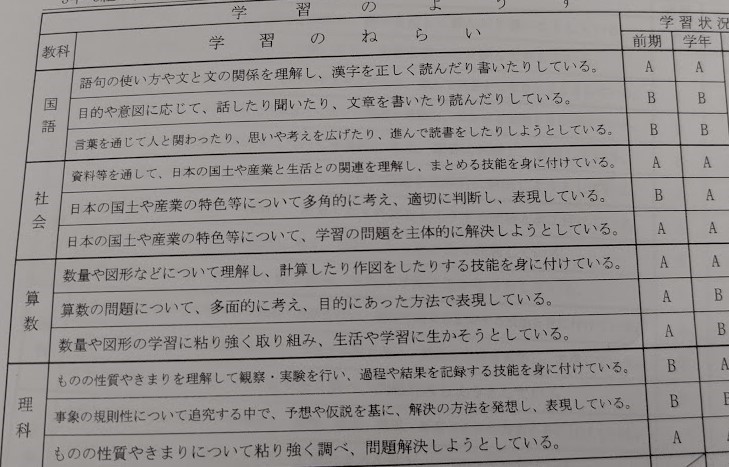 学習のようす
教科
学習のねらい
学習状況
前期 学年
国語
語句の使い方や文と文の関係を理解し、漢字を正しく読んだり書いたりしている。 A A
目的や意図に応じて、話したり聞いたり、文章を書いたり読んだりしている。 B B
言葉を通じて人と関わったり、思いや考えを広げたり、進んで読書をしたりしようとしている。 B B
社会
資料等を通して、日本の国土や産業と生活との関連を理解し、まとめる技能を身に付けている。 A A
日本の国土や産業の特色等について多角的に考え、適切に判断し、表現している。 B A
日本の国土や産業の特色等について、学習の問題を主体的に解決しようとしている。 A A
算数
数量や図形などについて理解し、計算したり作図をしたりする技能を身に付けている。 A A
算数の問題について、多面的に考え、目的にあった方法で表現している。 A B
数量や図形の学習に粘り強く取り組み、生活や学習に生かそうとしている。 A B
理科
ものの性質やきまりを理解して観察・実験を行い、過程や結果を記録する技能を身に付けている。 B A
事象の規則性について追究する中で、予想や仮説を基に、解決の方法を発想し、表現している。 B B
ものの性質やきまりについて粘り強く調べ、問題解決しようとしている。 A A